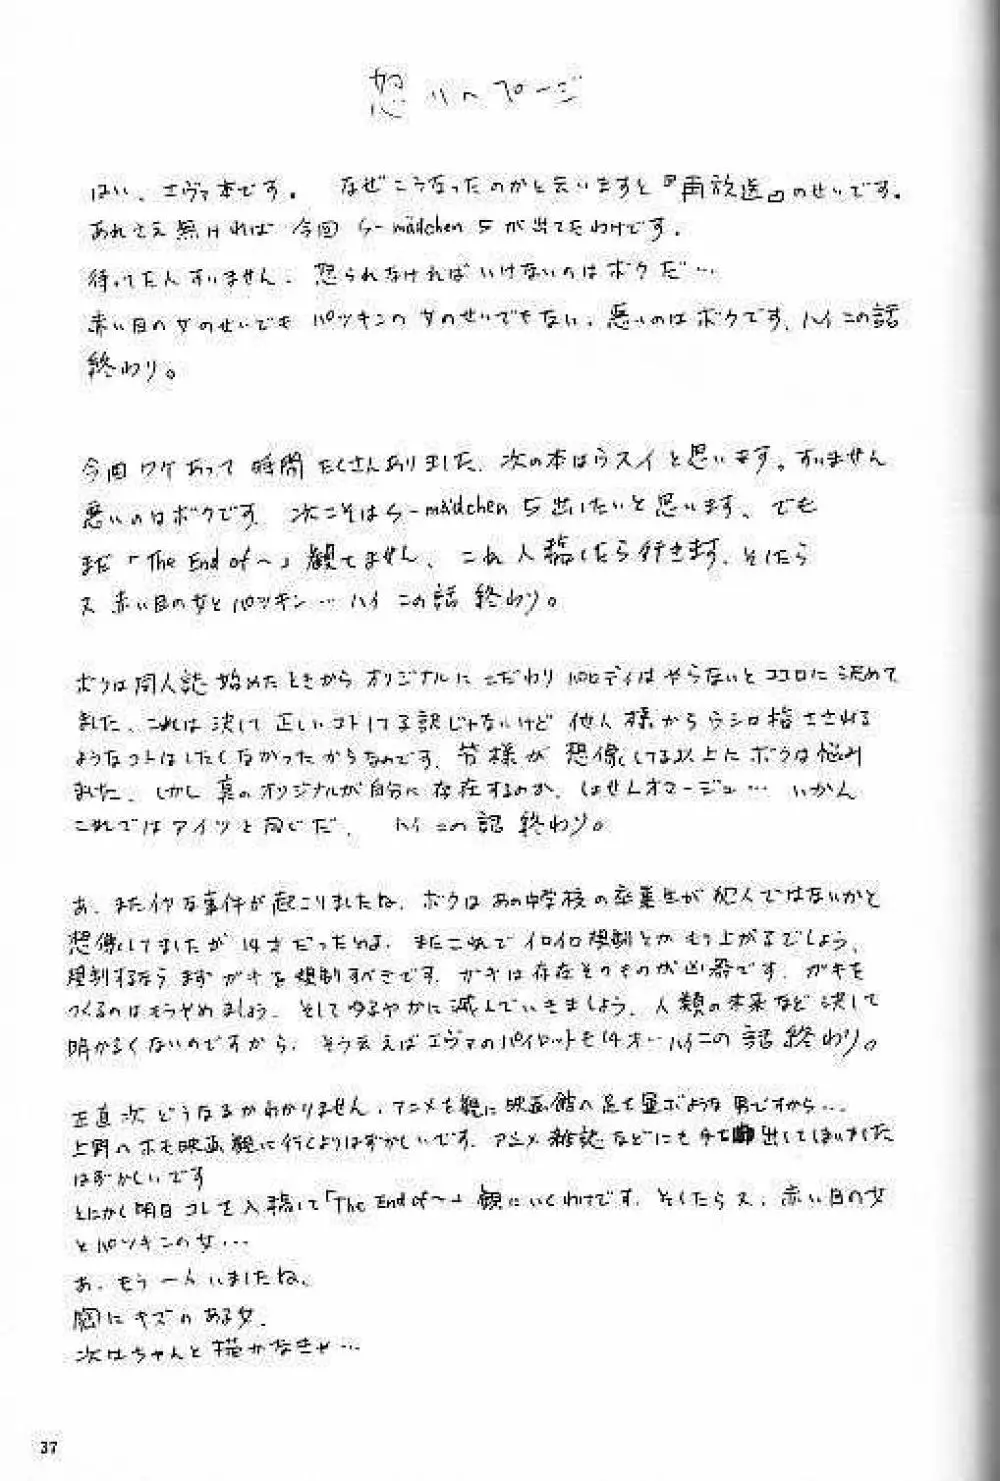 怒りのページ
はい、エヴァ本です。 なぜこうなったのかと云いますと『再放送』のせいです。
あれさえ無ければ今回 S-mädchen 5 が出てたわけです。
待ってた人すいません、怒られなければいけないのはボクだ…
赤い目の女のせいでもパツキンの女のせいでもない、悪いのはボクです、ハイこの話
終わり。
今回ワケあって時間たくさんありました、次の本はウスイと思います。すいません
悪いのはボクです 次こそはS-mädchen 5出したいと思います、でも
まだ「The End of〜」観てません、これ入稿したら行きます、そしたら
又赤い目の女とパツキン…ハイこの話終わり。
ボクは同人誌始めたときからオリジナルにこだわりパロディはやらないとココロに決めて
ました、これは決して正しいコトしてる訳じゃないけど他人様からうしろ指さされる
ようなコトはしたくなかったからなのです、皆様が想像してる以上にボクは悩み
ました、しかし真のオリジナルが自分に存在するのか、しょせんオマージュ… いかん
これではアイツと同じだ、 ハイこの話終わり。
あ、またイヤな事件が起こりましたね、ボクはあの中学校の卒業生が犯人ではないかと
想像してましたが14才だったのよ、またこれでイロイロ規制とかもり上がるでしょう、
規制するならまずガキを規制すべきです、ガキは存在そのものが凶器です、ガキを
つくるのはもうやめましょう、そしてゆるやかに滅んでいきましょう、人類の未来など決して
明かるくないのですから、そう云えばエヴァのパイロットも14才…ハイこの話終わり。
正直次どうなるかわかりません、アニメを観に映画館へ足を運ぶような男ですから…
上野へホモ映画観に行くよりはずかしいです、アニメ雑誌などにも手を出してしまいました
はずかしいです
とにかく明日コレを入稿して「The End of〜」観にいくわけです、そしたら又、赤い目の女
とパツキンの女…
あ、もう一人いましたね、
胸にキズのある女、
次はちゃんと描かなきゃ…
37